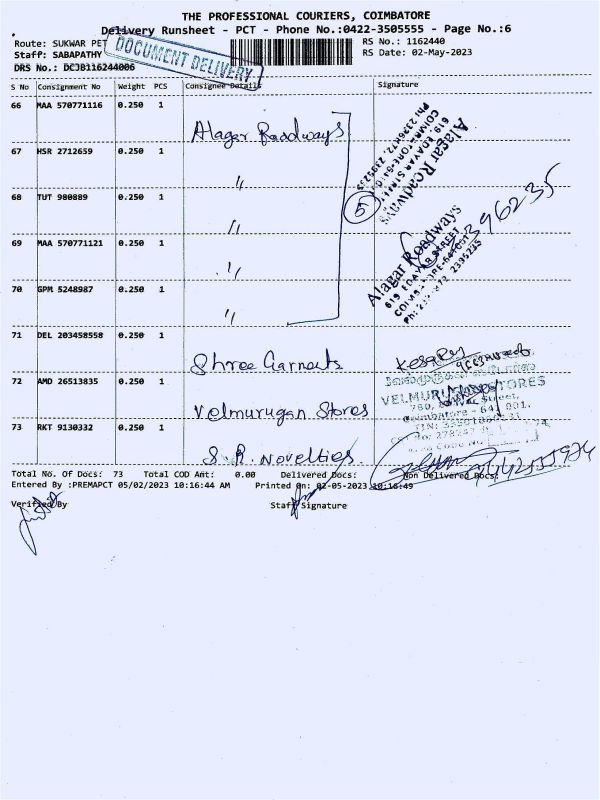 THE PROFESSIONAL COURIERS, COIMBATORE
Delivery Runsheet - PCT - Phone No.:0422-3505555 - Page No.:6
Route: SUKWAR PET
RS No.: 1162440
Staff: SABAPATHY
RS Date: 02-May-2023
DRS No.: DCJB116244006
DOCUMENT DELIVERY
S No Consignment No Weight PCS Consignee Details Signature
66 MAA 570771116 0.250 1 Alagar Roadways
67 HSR 2712659 0.250 1 "
68 TUT 980889 0.250 1 "
69 MAA 570771121 0.250 1 "
70 GPM 5248987 0.250 1 "
5
Alagar Roadways
619 EDAYAR STREET
Alagar Roadways
619 EDAYAR STREET
2395235
71 DEL 203458558 0.250 1 Shree Garments
72 AMD 26513835 0.250 1 Velmurugan Stores
VELMURUGAN STORES
Coimbatore - 641 001.
73 RKT 9130332 0.250 1 S.R. Novelties
Total No. Of Docs: 73 Total COD Amt: 0.00 Delivered Docs: Non Delivered Docs:
Entered By :PREMAPCT 05/02/2023 10:16:44 AM Printed On: 02-05-2023 10:16:49
Verified By Staff Signature